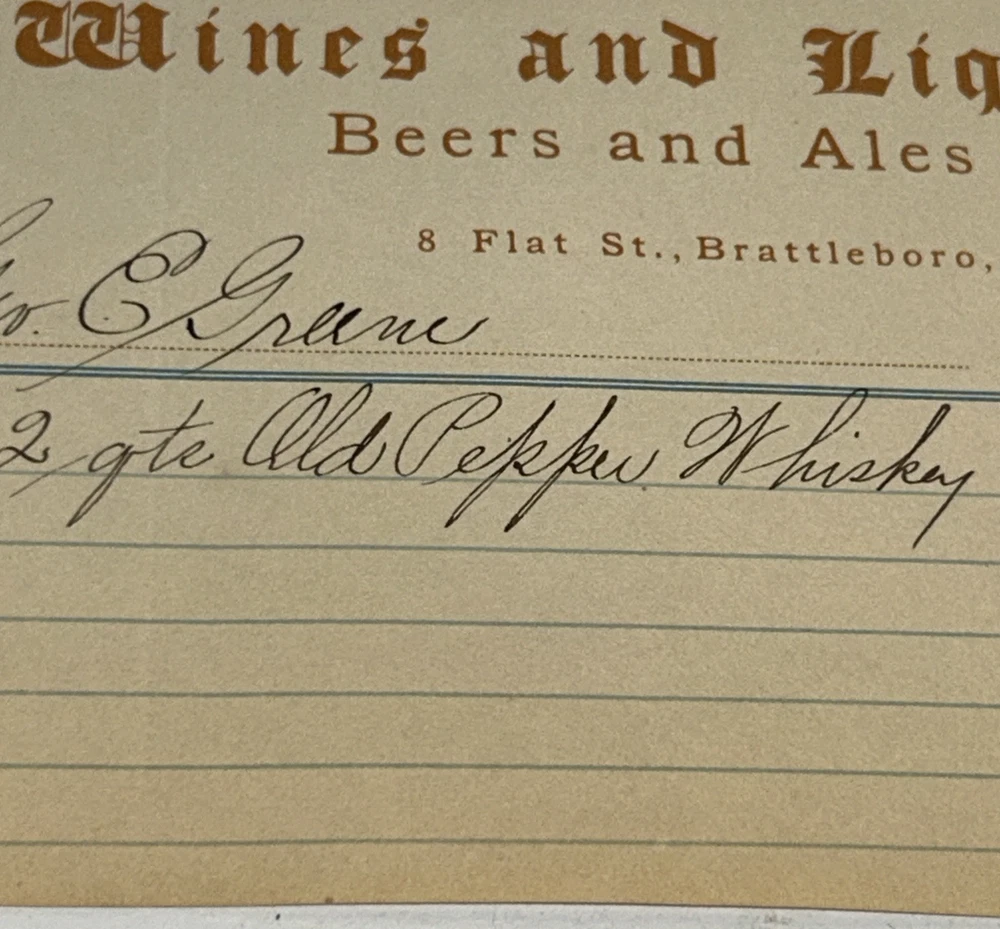 Wines and Liq
Beers and Ales
8 Flat St., Brattleboro,
E Greene
2 qts Old Pepper Whiskey